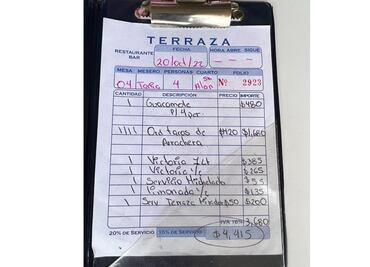 TERRAZA
RESTAURANTE BAR
FECHA
HORA ABRE SIGUE
20/oct/22
MESA MESERO PERSONAS CUARTO FOLIO
04 4 Nº 2923
CANTIDAD DESCRIPCIÓN PRECIO IMPORTE
1 Guacamole $480
P/4 per.
1111 Ord tacos de $420 $1,680
Arrachera
1 Victoria $385
1 Victoria 1/2 $265
1 Servicio Michelada $55
1 limonada 1/2 $135
1 Serv Terraza $50 $200
IVA 16% 3,680
20% DE SERVICIO 15% DE SERVICIO $4,415